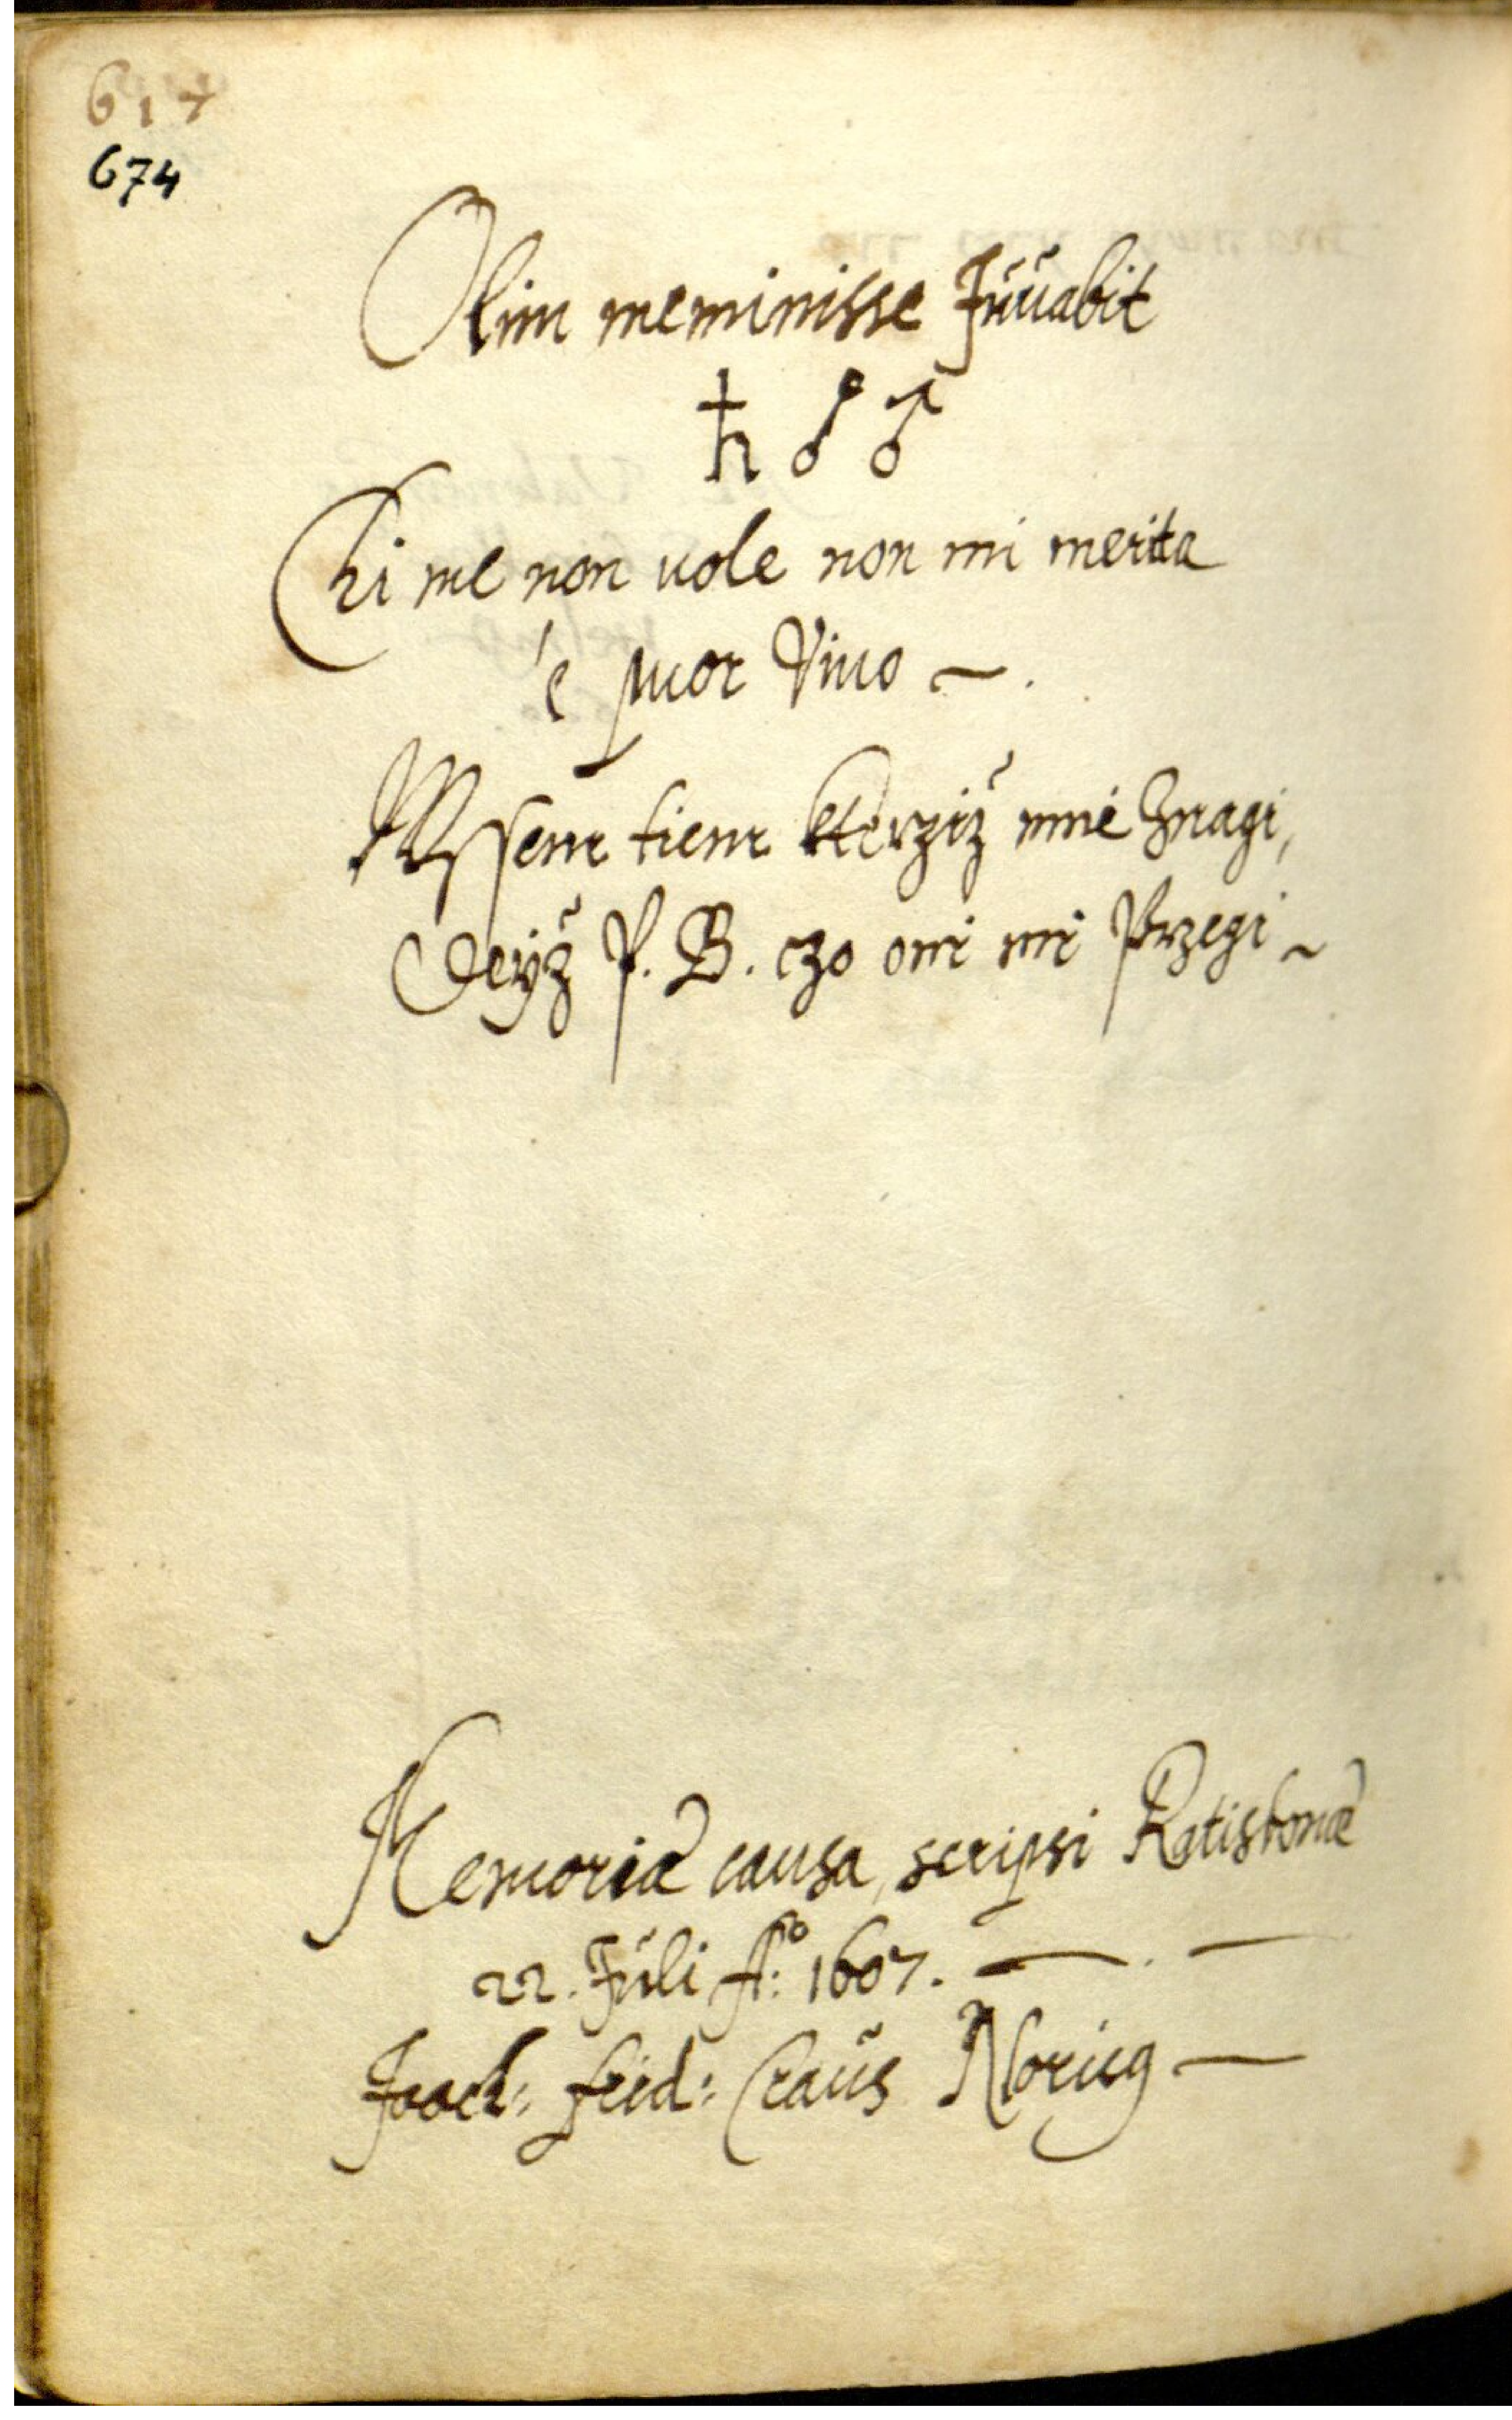 617
674
Olim meminisse Juuabit
♄ ♂ ♂
Chi me non uole non mi merita
è puor Viuo
Wssem tiem kterziž mnie Znagi,
Deyž P. B. czo oni mi Przegi
Memoriæ causa, scripsi Ratisbonæ
22. Juli Aº: 1607.
Joach: frid: Craus Noricg